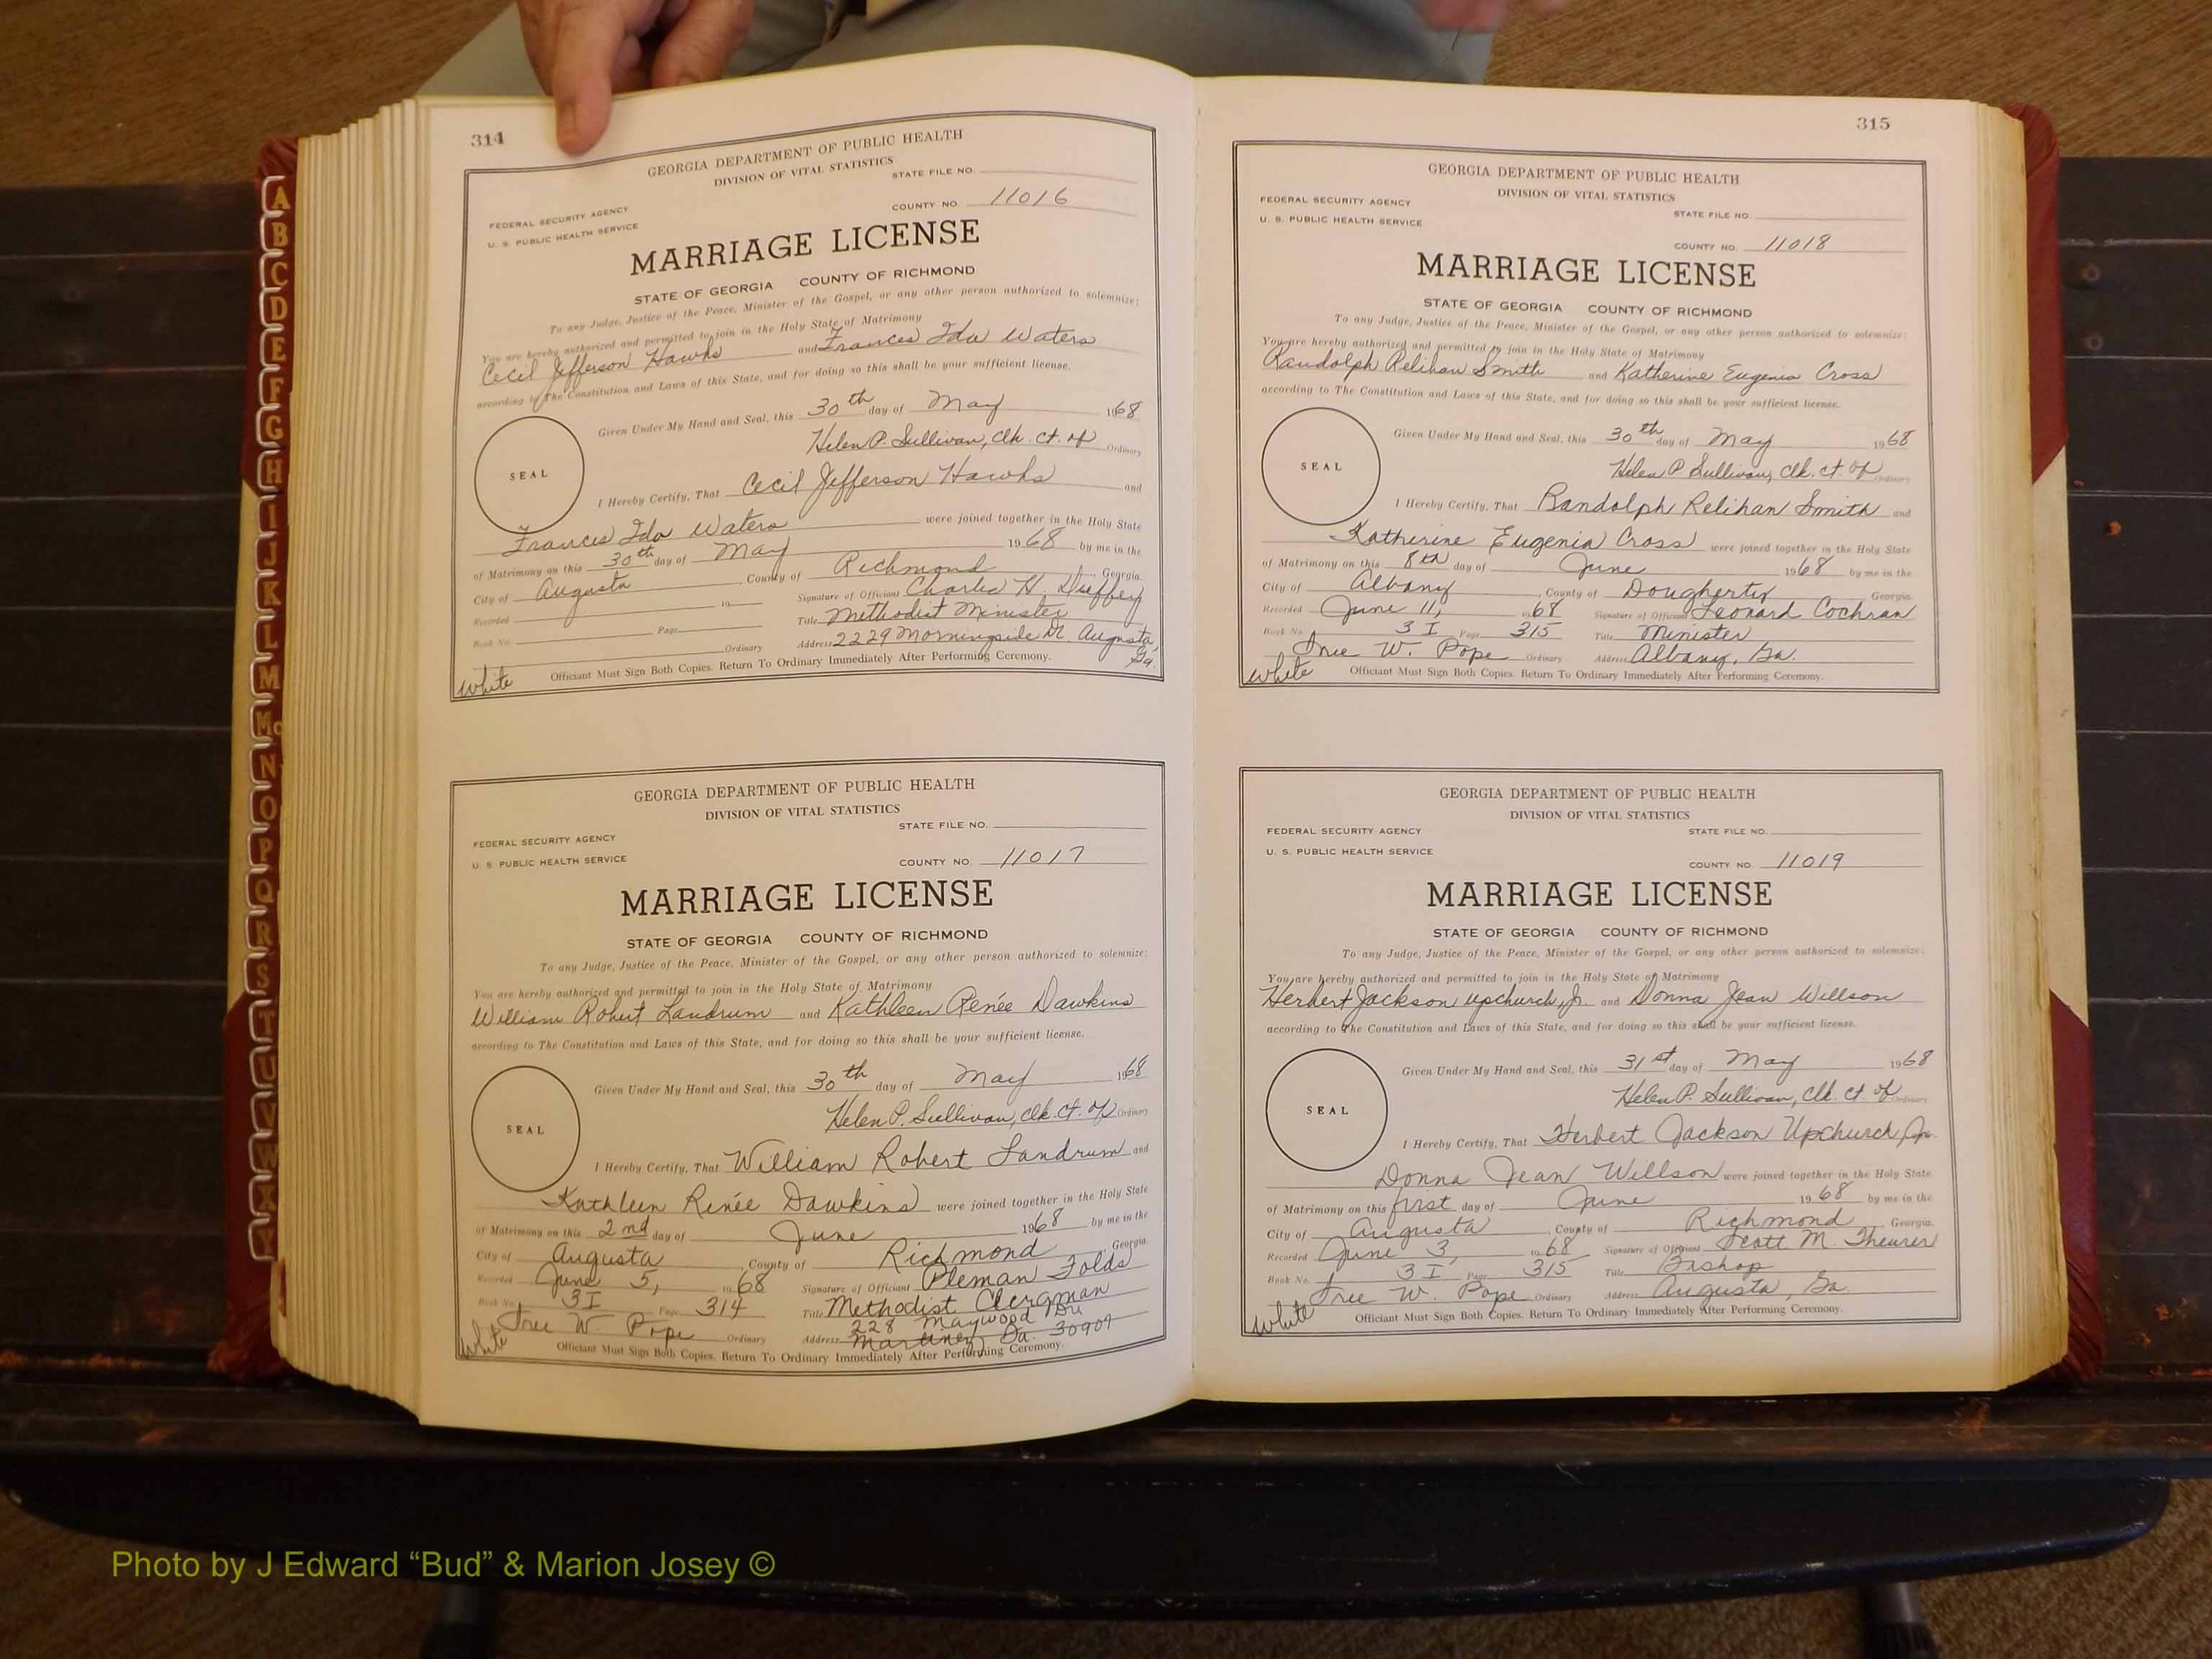 314
GEORGIA DEPARTMENT OF PUBLIC HEALTH
DIVISION OF VITAL STATISTICS
STATE FILE NO.
FEDERAL SECURITY AGENCY
COUNTY NO. 11016
U. S. PUBLIC HEALTH SERVICE
MARRIAGE LICENSE
STATE OF GEORGIA COUNTY OF RICHMOND
To any Judge, Justice of the Peace, Minister of the Gospel, or any other person authorized to solemnize:
You are hereby authorized and permitted to join in the Holy State of Matrimony
Cecil Jefferson Hawks and Frances Ida Waters
according to The Constitution and Laws of this State, and for doing so this shall be your sufficient license.
Given Under My Hand and Seal, this 30th day of May 1968
Helen P. Sullivan, Clk. Ct. of Ordinary
SEAL
I Hereby Certify, That Cecil Jefferson Hawks and
Frances Ida Waters were joined together in the Holy State
of Matrimony on this 30th day of May 1968 by me in the
City of Augusta, County of Richmond, Georgia.
Recorded 19 Signature of Officiant Charles H.
Book No. Page Title Methodist Minister
Ordinary Address 2229 Morningside Dr. Augusta, Ga.
White Officiant Must Sign Both Copies. Return To Ordinary Immediately After Performing Ceremony.
GEORGIA DEPARTMENT OF PUBLIC HEALTH
DIVISION OF VITAL STATISTICS
STATE FILE NO.
FEDERAL SECURITY AGENCY
COUNTY NO. 11017
U. S. PUBLIC HEALTH SERVICE
MARRIAGE LICENSE
STATE OF GEORGIA COUNTY OF RICHMOND
To any Judge, Justice of the Peace, Minister of the Gospel, or any other person authorized to solemnize:
You are hereby authorized and permitted to join in the Holy State of Matrimony
William Robert Landrum and Kathleen Renée Dawkins
according to The Constitution and Laws of this State, and for doing so this shall be your sufficient license.
Given Under My Hand and Seal, this 30th day of May 1968
Helen P. Sullivan, Clk. Ct. of Ordinary
SEAL
I Hereby Certify, That William Robert Landrum and
Kathleen Renée Dawkins were joined together in the Holy State
of Matrimony on this 2nd day of June 1968 by me in the
City of Augusta, County of Richmond, Georgia.
Recorded June 5, 1968 Signature of Officiant Pleman Folds
Book No. 3I Page 314 Title Methodist Clergman
Tree W. Pope Ordinary Address 228 Maywood Dr.
Martinez, Ga. 30907
White Officiant Must Sign Both Copies. Return To Ordinary Immediately After Performing Ceremony.
315
GEORGIA DEPARTMENT OF PUBLIC HEALTH
DIVISION OF VITAL STATISTICS
FEDERAL SECURITY AGENCY
STATE FILE NO.
U. S. PUBLIC HEALTH SERVICE
COUNTY NO. 11018
MARRIAGE LICENSE
STATE OF GEORGIA COUNTY OF RICHMOND
To any Judge, Justice of the Peace, Minister of the Gospel, or any other person authorized to solemnize:
You are hereby authorized and permitted to join in the Holy State of Matrimony
Randolph Relihan Smith and Katherine Eugenia Cross
according to The Constitution and Laws of this State, and for doing so this shall be your sufficient license.
Given Under My Hand and Seal, this 30th day of May 1968
Helen P. Sullivan, Clk. Ct. of Ordinary
SEAL
I Hereby Certify, That Randolph Relihan Smith and
Katherine Eugenia Cross were joined together in the Holy State
of Matrimony on this 8th day of June 1968 by me in the
City of Albany, County of Dougherty Georgia.
Recorded June 11, 1968 Signature of Officiant Leonard Cochran
Book No. 3I Page 315 Title Minister
Tree W. Pope Ordinary Address Albany, Ga.
White Officiant Must Sign Both Copies. Return To Ordinary Immediately After Performing Ceremony.
GEORGIA DEPARTMENT OF PUBLIC HEALTH
DIVISION OF VITAL STATISTICS
FEDERAL SECURITY AGENCY
STATE FILE NO.
U. S. PUBLIC HEALTH SERVICE
COUNTY NO. 11019
MARRIAGE LICENSE
STATE OF GEORGIA COUNTY OF RICHMOND
To any Judge, Justice of the Peace, Minister of the Gospel, or any other person authorized to solemnize:
You are hereby authorized and permitted to join in the Holy State of Matrimony
Herbert Jackson Upchurch, Jr. and Donna Jean Willson
according to The Constitution and Laws of this State, and for doing so this shall be your sufficient license.
Given Under My Hand and Seal, this 31st day of May 1968
Helen P. Sullivan, Clk. Ct. of Ordinary
SEAL
I Hereby Certify, That Herbert Jackson Upchurch Jr.
Donna Jean Willson were joined together in the Holy State
of Matrimony on this first day of June 1968 by me in the
City of Augusta, County of Richmond Georgia.
Recorded June 3, 1968 Signature of Officiant Scott M. Theurer
Book No. 3I Page 315 Title Bishop
Tree W. Pope Ordinary Address Augusta, Ga.
White Officiant Must Sign Both Copies. Return To Ordinary Immediately After Performing Ceremony.
A
B
C
D
E
F
G
H
I
J
K
L
M
Mc
N
O
P
Q
R
S
T
U
V
W
X
Y
Photo by J Edward “Bud” & Marion Josey ©